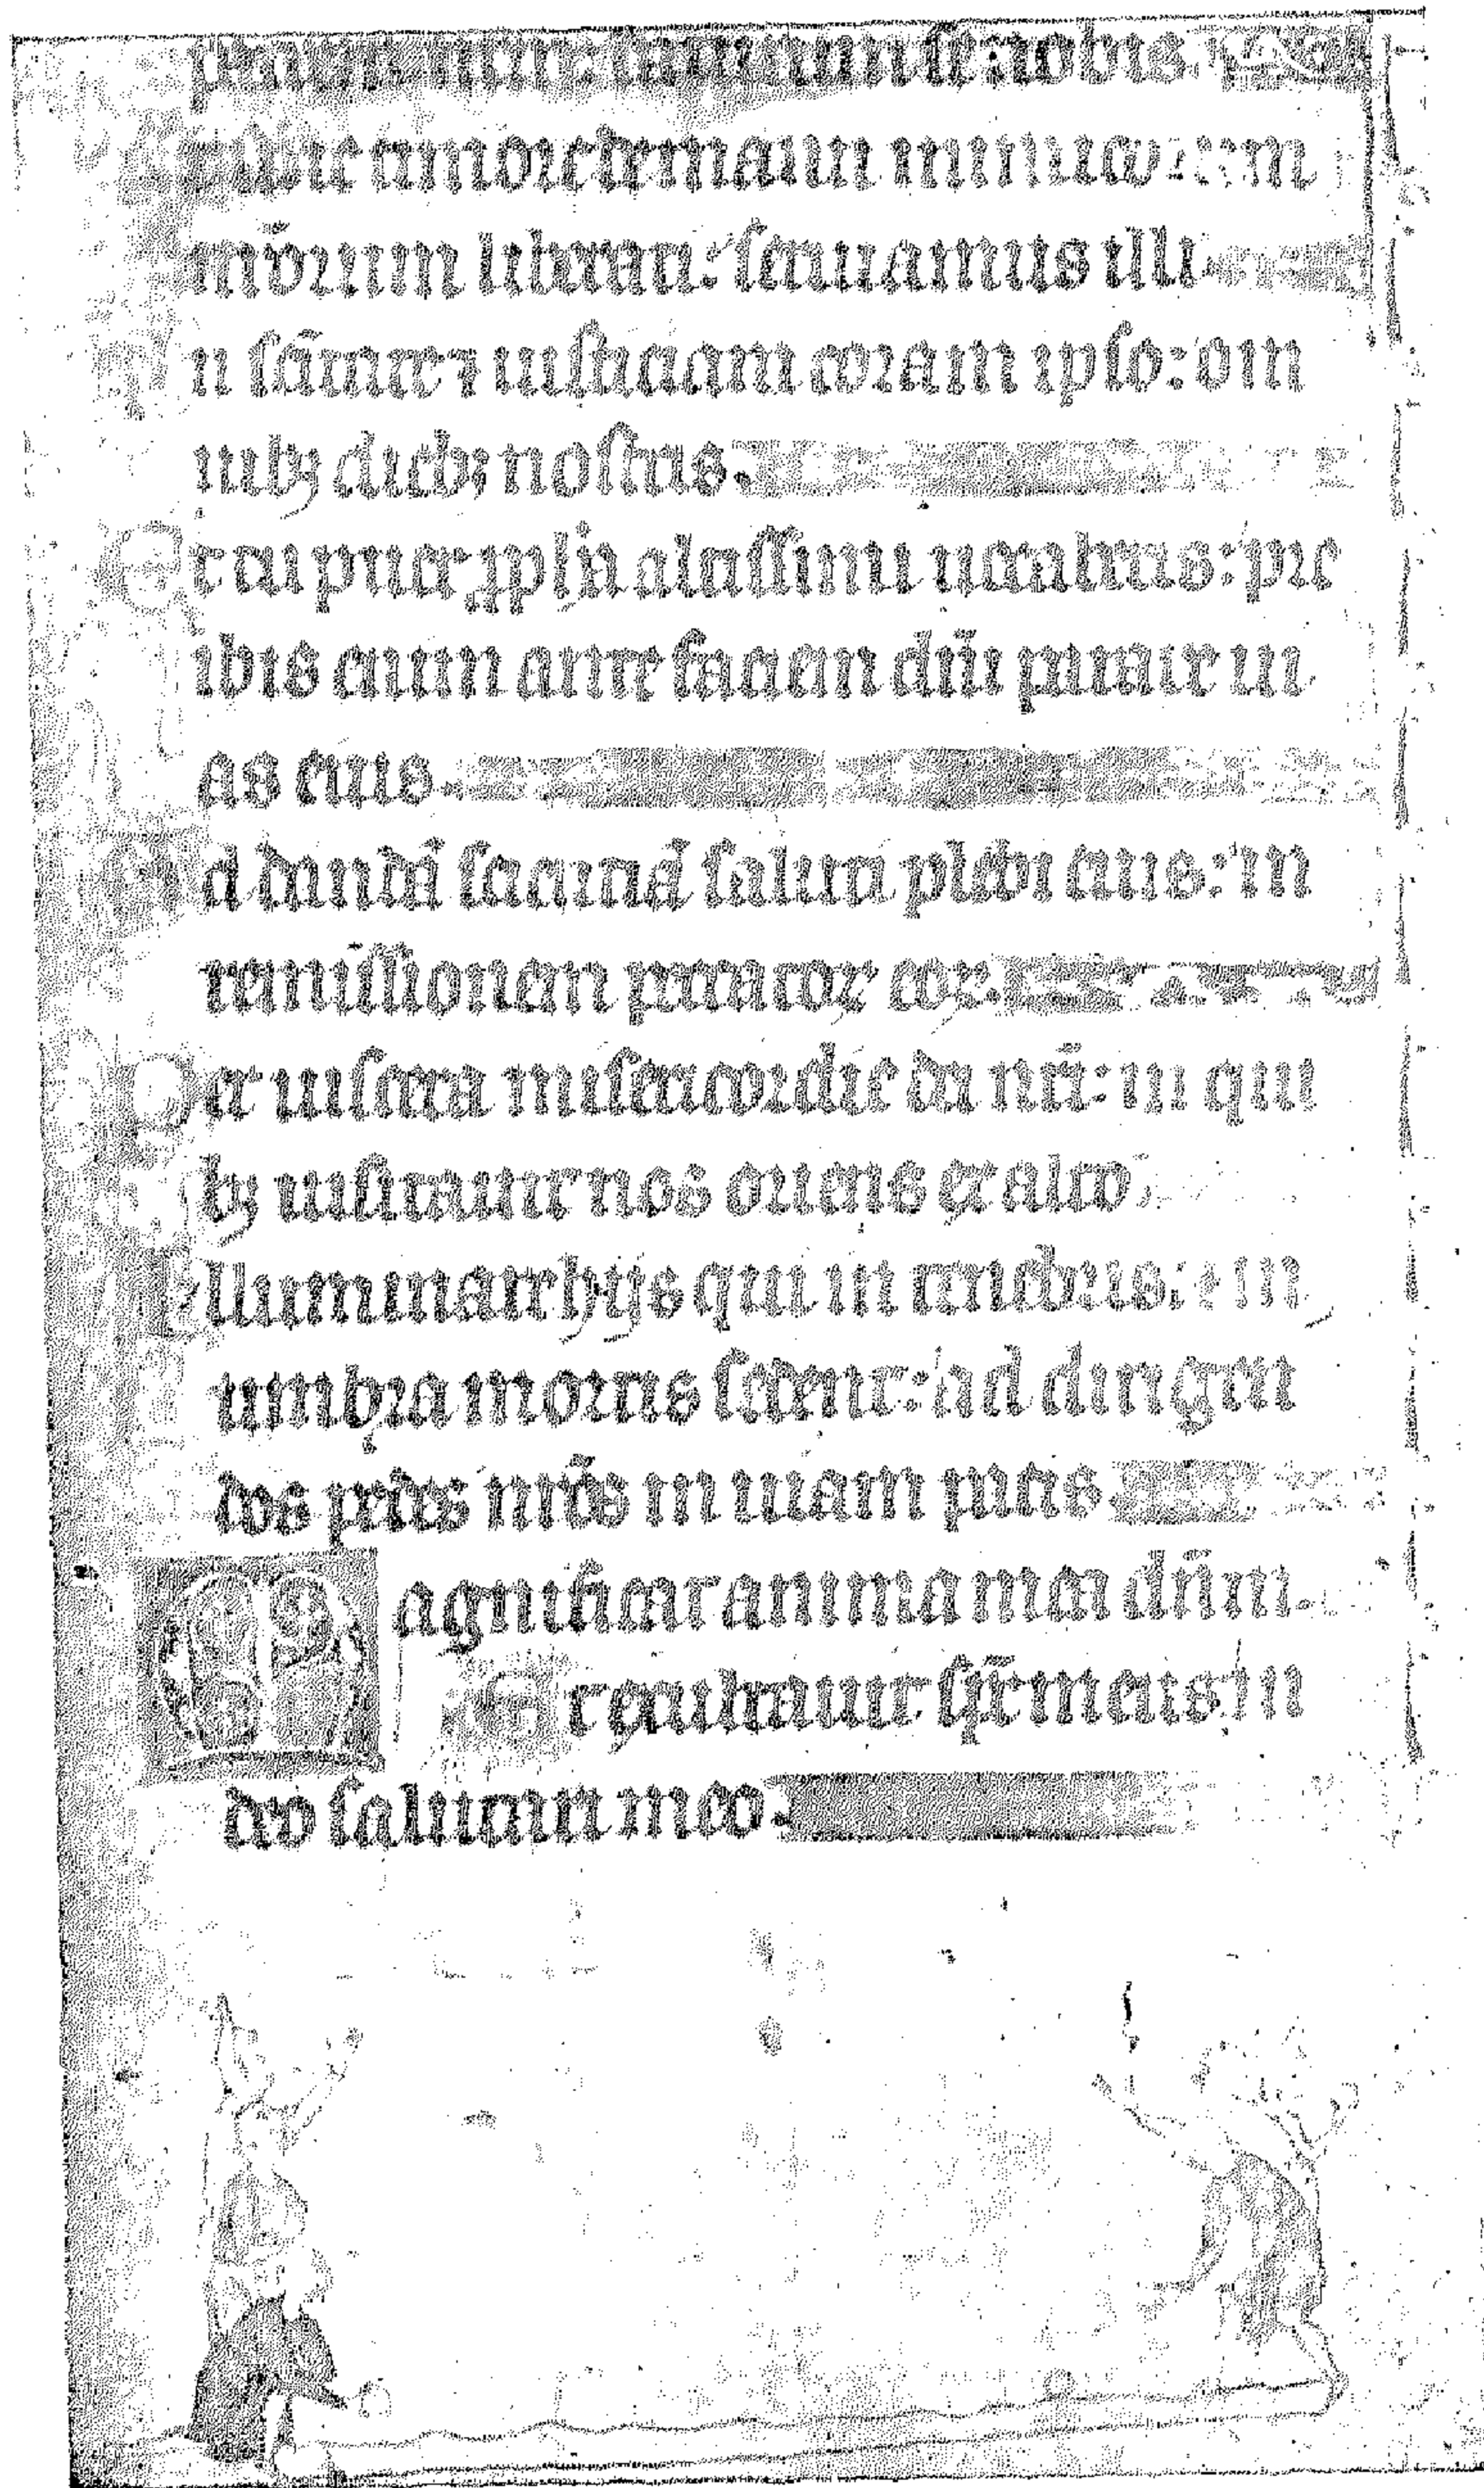 patrem nrm: daturum se nobis
t sine timore de manu inimicorum
nrōrum liberati: seruiamus illi
n sc̄itate ⁊ iusticiam coram ipso: om
nibꝫ diebꝫ nostris.
Et tu puer ꝓph̄a altissimi uocaberis: pre
ibis enim ante faciem dn̄i parare ui
as eius.
Ad dandā scienciā salutis plebi eius: in
remissionem peccatoꝝ eoꝝ.
Per uiscera misericordie dei nr̄i: in qui
bꝫ uisitauit nos oriens ex alto
Illuminare hijs qui in tenebris: ⁊ in
umbra mortis sedent: ad dirigen
dos pedes nr̄os in uiam pacis
Magnificat anima mea dn̄m.
Et exultauit sp̄s meus: in
deo salutari meo.